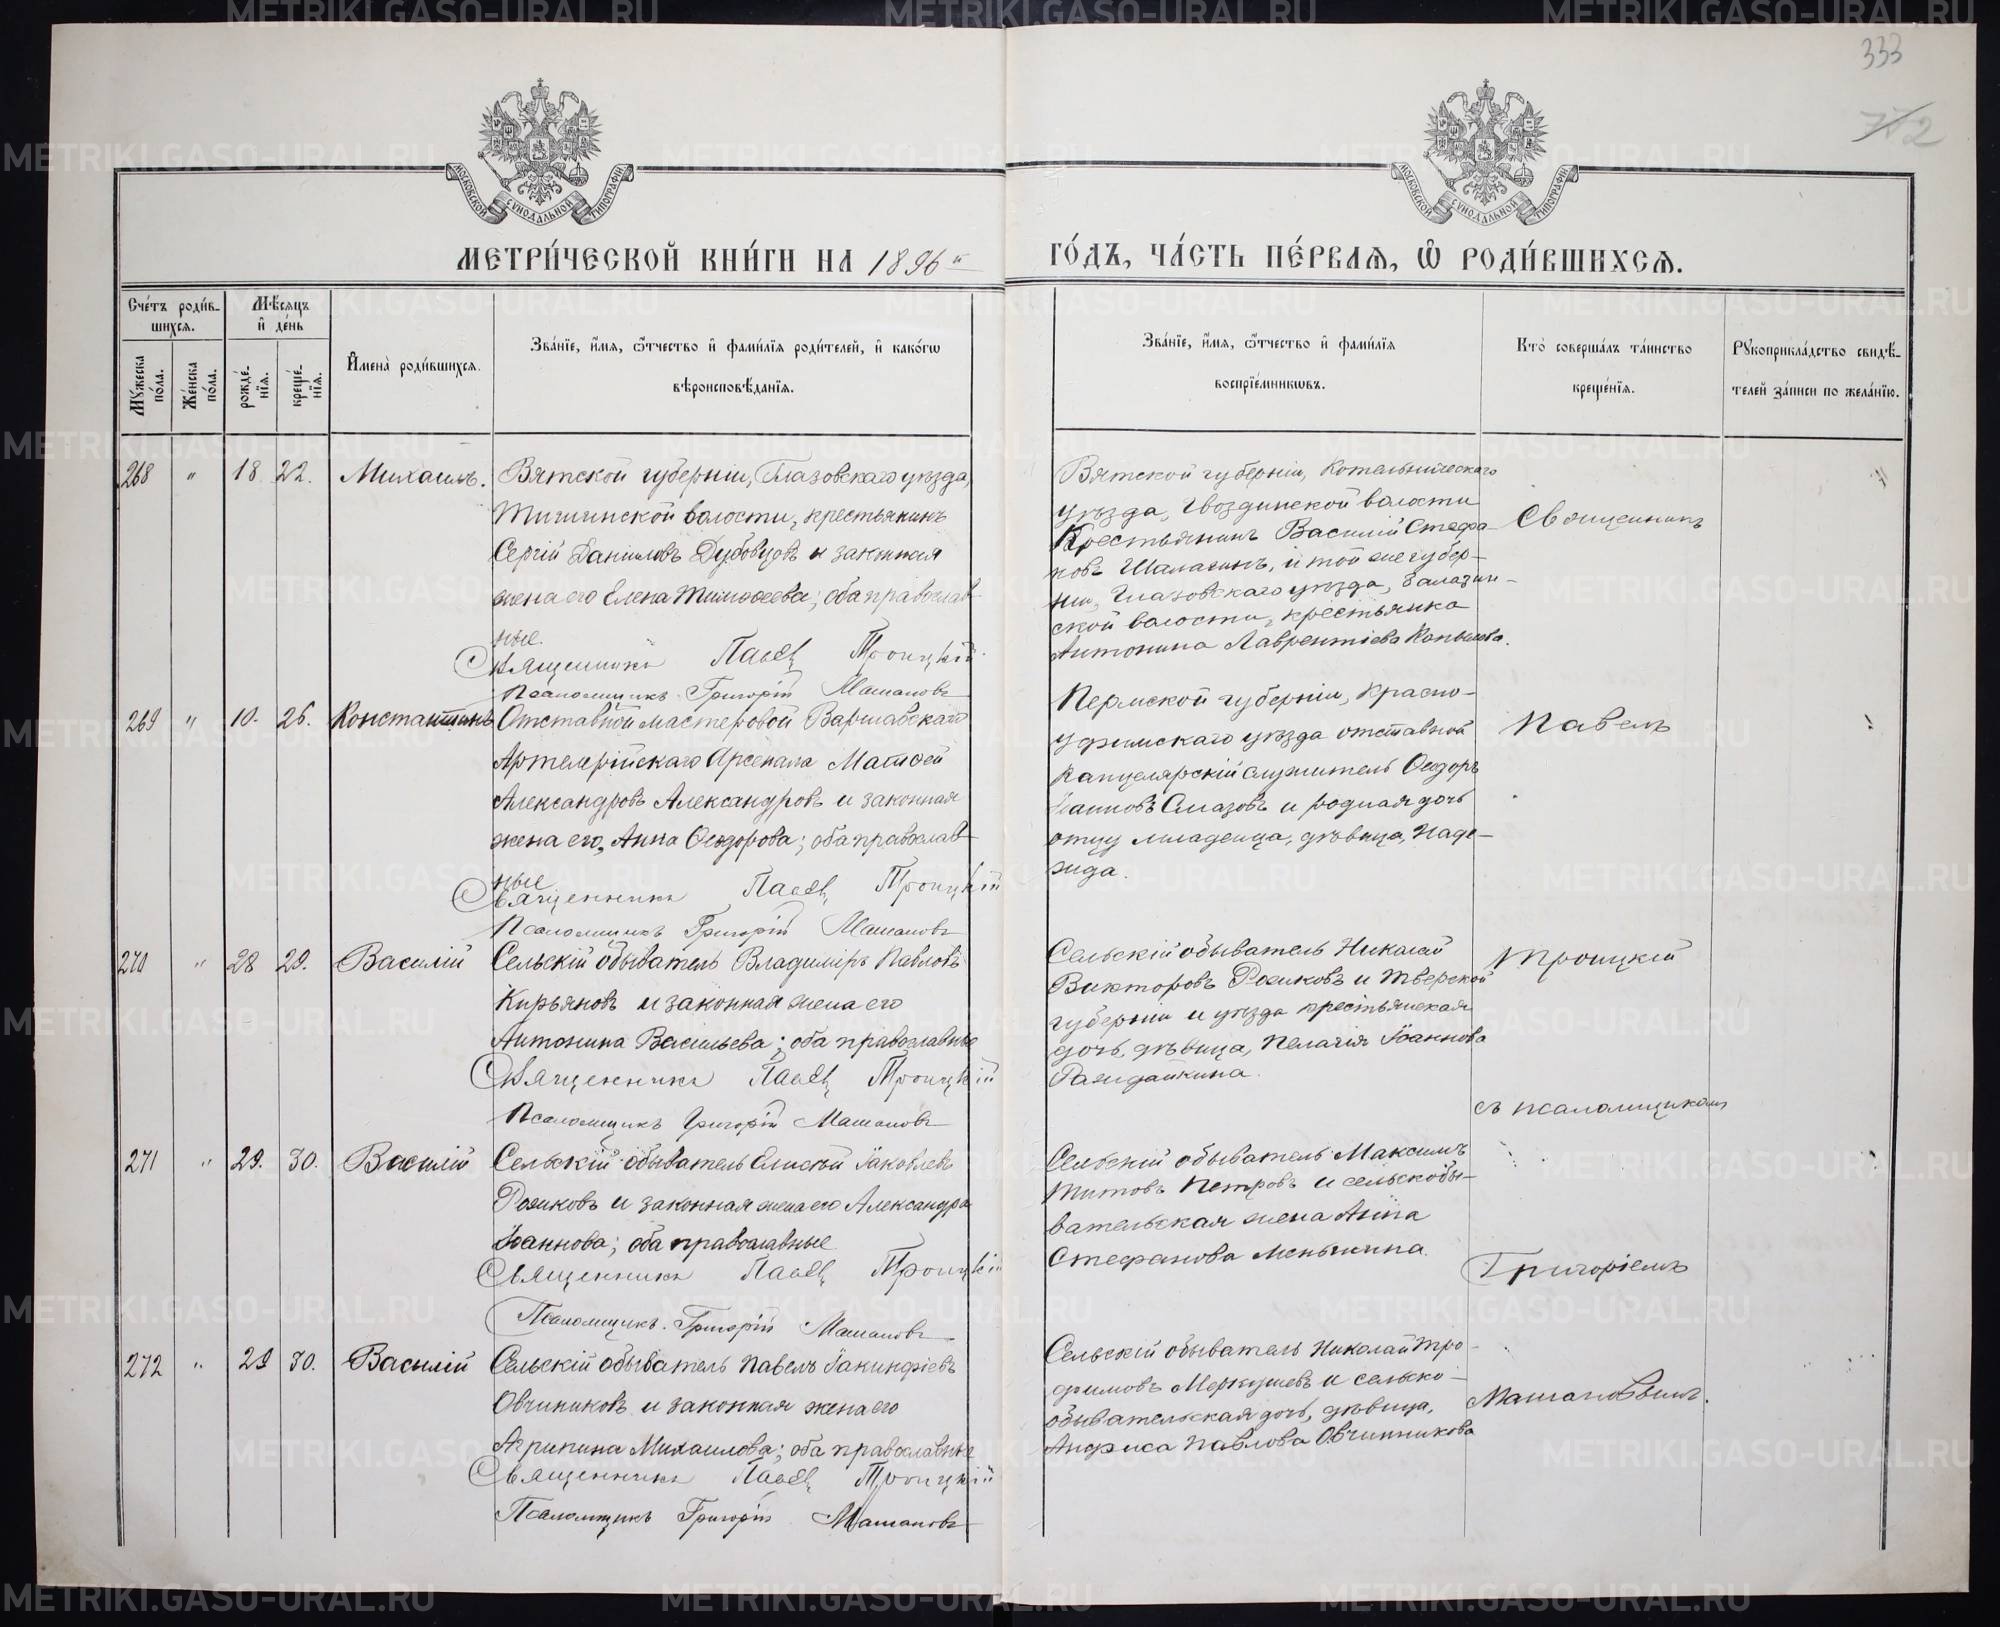 333
772
МОСКОВСКОЙ СѴНОДАЛЬНОЙ ТИПОГРАФІИ
МОСКОВСКОЙ СѴНОДАЛЬНОЙ ТИПОГРАФІИ
МЕТРИ́ЧЕСКОЙ КНИ́ГИ НА 1896й ГО́ДЪ, ЧА́СТЬ ПЕ́РВАѦ, Ѡ҆ РОДИ́ВШИХСѦ.
Сче́тъ роди́в-
шихсѧ.
Мѣ́сѧцъ
и҆ де́нь
Мꙋ́жеска по́ла.
Же́нска по́ла.
рожде́нїѧ.
креще́нїѧ.
И҆мена̀ роди́вшихсѧ.
Зва́нїе, и҆́мѧ, ѻ҆́тчество и҆ фами́лїѧ роди́телей, и҆ како́гѡ
вѣроисповѣ́данїѧ.
Зва́нїе, и҆́мѧ, ѻ҆́тчество и҆ фами́лїѧ
воспрїе́мникѡвъ.
Кто̀ соверша́лъ та́инство
креще́нїѧ.
Рꙋкоприкла́дство свидѣ́-
телей за́писи по жела́нїю.
268 " 18 22. Михаилъ.
Вятской губерніи, Глазовскаго уѣзда,
Тишинской волости, крестьянинъ
Сергій Даниловъ Дубовцовъ и законная
жена его Елена Тимоѳеева; оба православ-
ные.
Священникъ Павелъ Троицкій
Псаломщикъ Григорій Машановъ
Вятской губерніи, Котельническаго
уѣзда, Гвоздинской волости
Крестьянинъ Василій Стефа-
новъ Шалагинъ, и той же губер-
ніи, Глазовскаго уѣзда, Залазин-
ской волости, крестьянка
Антонина Лаврентіева Копылова.
269 " 10. 26. Константинъ
Отставной мастеровой Варшавскаго
Артелерійскаго Арсенала Матѳей
Александровъ Александровъ и законная
жена его, Анна Ѳеодорова; оба православ-
ные
Священникъ Павелъ Троицкій
Псаломщикъ Григорій Машановъ
Пермской губерніи, Красно-
уфимскаго уѣзда отставной
Канцелярскій служитель Ѳеодоръ
Іаиновъ Смазовъ и родная дочь
отцу младенца, дѣвица, Наде-
жда.
270 " 28 29. Василій
Сельскій обыватель Владиміръ Павловъ
Кирьяновъ и законная жена его
Антонина Васильева; оба православные
Священникъ Павелъ Троицкій
Псаломщикъ Григорій Машановъ
Сельскій обыватель Николай
Викторовъ Рожковъ и Тверской
губерніи и уѣзда крестьянская
дочь, дѣвица, Пелагія Іоаннова
Раждайкина.
271 " 29. 30. Василій
Сельскій обыватель Елисѣй Іаковлевъ
Рожковъ и законная жена его Александра
Іоаннова; оба православные
Священникъ Павелъ Троицкій
Псаломщикъ Григорій Машановъ
Сельскій обыватель Максимъ
Титовъ Петровъ и сельскобы-
вательская жена Анна
Стефанова Меньшина
272 " 29 30. Василій
Сельскій обыватель Павелъ Іакинфіевъ
Овчиниковъ и законная жена его
Агрипина Михаилова; оба православные
Священникъ Павелъ Троицкій
Псаломщикъ Григорій Машановъ
Сельскій обыватель Николай Тро-
фимовъ Меркушевъ и сельско-
обывательская дочь, дѣвица,
Анфиса Павлова Овчинникова
Священникъ
Павелъ
Троицкій
съ псаломщикомъ
Григоріемъ
Машановымъ.
METRIKI.GASO-URAL.RU